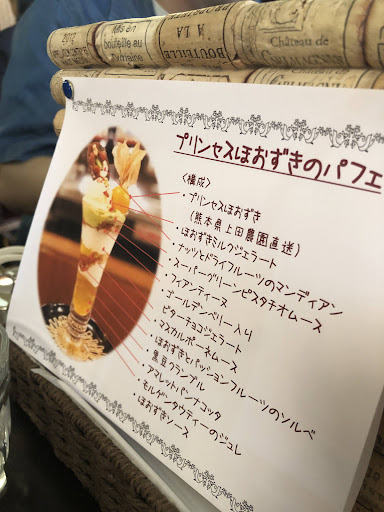 2012
Mis en
bouteille au
Domaine
A LA
BOUTEILLE
Château de
プリンセスほおずきのパフェ
〈構成〉
・プリンセスほおずき
(熊本県上田農園直送)
・ほおずきミルクジェラート
・ナッツとドライフルーツのマンディアン
・スーパーグリーンピスタチオムース
・フィアンティーヌ
・ゴールデンベリー入り
・ビターチョコジェラート
・マスカルポーネムース
・ほおずきとパッションフルーツのソルベ
・黒豆クランブル
・アマレットパンナコッタ
・モルゲンタウティーのジュレ
・ほおずきソース